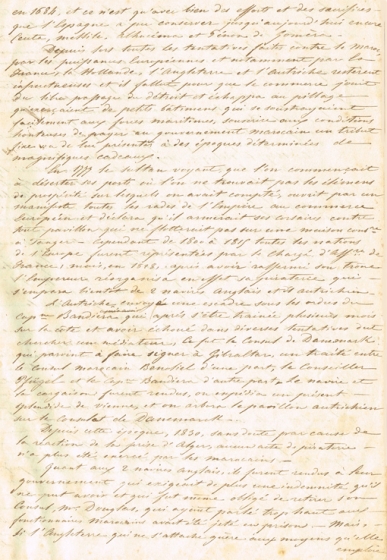 en 1684, et ce n'est qu'avec bien du efforts et des sacrifices
que l'Espagne a pu conserver jusqu'aujourd'hui encore
Ceuta, Mélille, Alhucema et Pénon de Gomera.
Depuis lors toutes les tentatives faites contre le Maroc
par les puissances Européennes et notamment par la
France, la Hollande, l'Angleterre et l'Autriche restèrent
infructueuses et il fallut pour que le commerce jouit
du libre passage du détroit et échappa au pillage
pirates, de petits bâtiments qui se
aux forces maritimes, souscrire aux conditions
honteuses de payer au gouvernement marocain un tribut
fixe ou de lui présenter à des époques déterminées de
magnifiques cadeaux.
En 1777 le Sultan voyant que l'on commençait
à déserter ses ports où l'on ne trouvait pas les éléments
de prospérité sur lesquels on avait compté, ouvrit par un
manifeste toutes les rades de l'Empire au commerce
Européen et déclara qu'il armerait ses corsaires contre
tout pavillon qui ne flotterait pas sur une maison cons.re
à Tanger. Cependant de 1800 à 1815 toutes les nations
de l'Europe furent représentées par le Chargé d'Aff.res de
France; mais, en 1828, après avoir raffermi son trône
l'Empereur réorganisa en effet sa piraterie qui
s'empara bientôt de 2 navires Anglais et 1 autrichien.
L'Autriche envoya une escadre sous les ordres du
Cap.ne Bandiera qui après s'être trainée plusieurs mois
sur la côte et avoir échoué dans diverses tentatives dut
chercher un médiateur. Ce fut le Consul de Danemark
qui parvint à faire signer à Gibraltar, un traité entre
le Consul marocain Benoliel d'une part, le Conseiller
Pflügel et le Cap.ne Bandiera d'autre part. Le navire et
la cargaison furent rendus, on expédia un présent
splendide de Vienne, et on arbora le pavillon autrichien
sur le Consulat de Danemark.
Depuis cette époque, 1830, sans doute par cause de
la réaction de la prise d'Alger, aucun acte de piraterie
n'a plus été exercé par les marocains.
Quant aux 2 navires anglais, ils furent rendus à leur
gouvernement qui exigeait de plus une indemnité qu'il
ne put avoir et qui fut même obligé de retirer son
Consul, Mr. Douglas, qui ayant parlé trop haut aux
fonctionnaires Marocains avait été jeté en prison. Mais,
si l'Angleterre qui ne s'attache guère aux moyens qu'elle
emploie